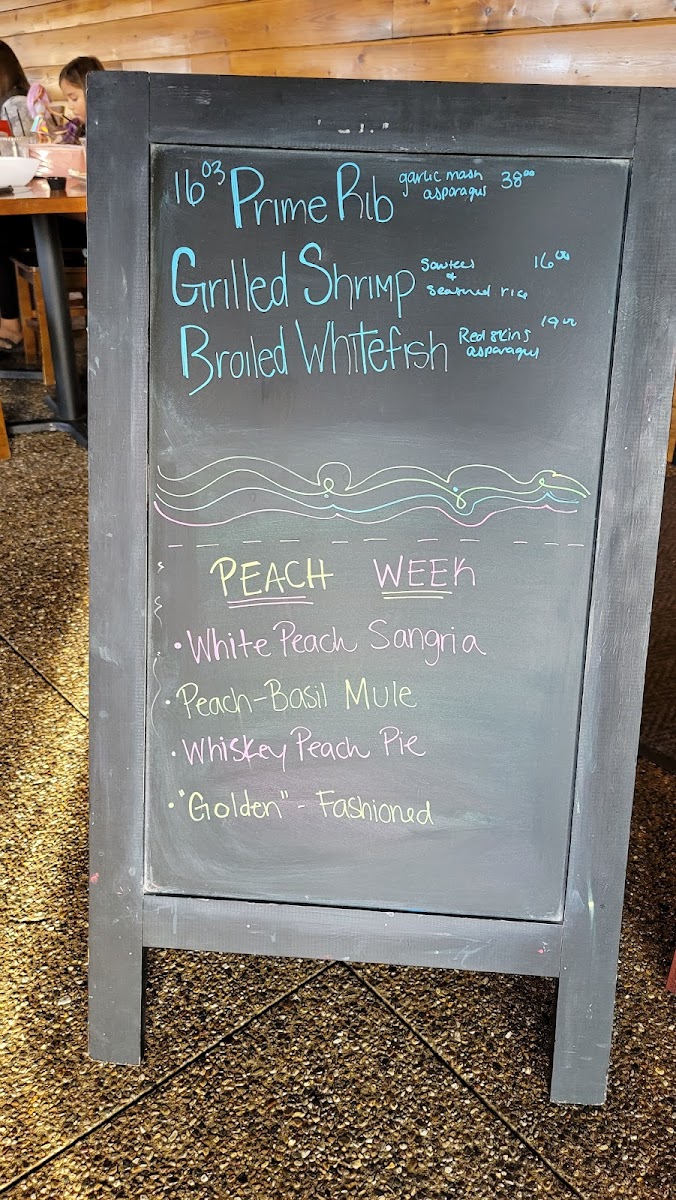 16 oz Prime Rib garlic mash asparagus 38⁰⁰
Grilled Shrimp & seasoned rice 16⁰⁰
Broiled Whitefish Redskins asparagus 19⁰⁰
PEACH WEEK
• White Peach Sangria
• Peach-Basil Mule
• Whiskey Peach Pie
• "Golden" - Fashioned